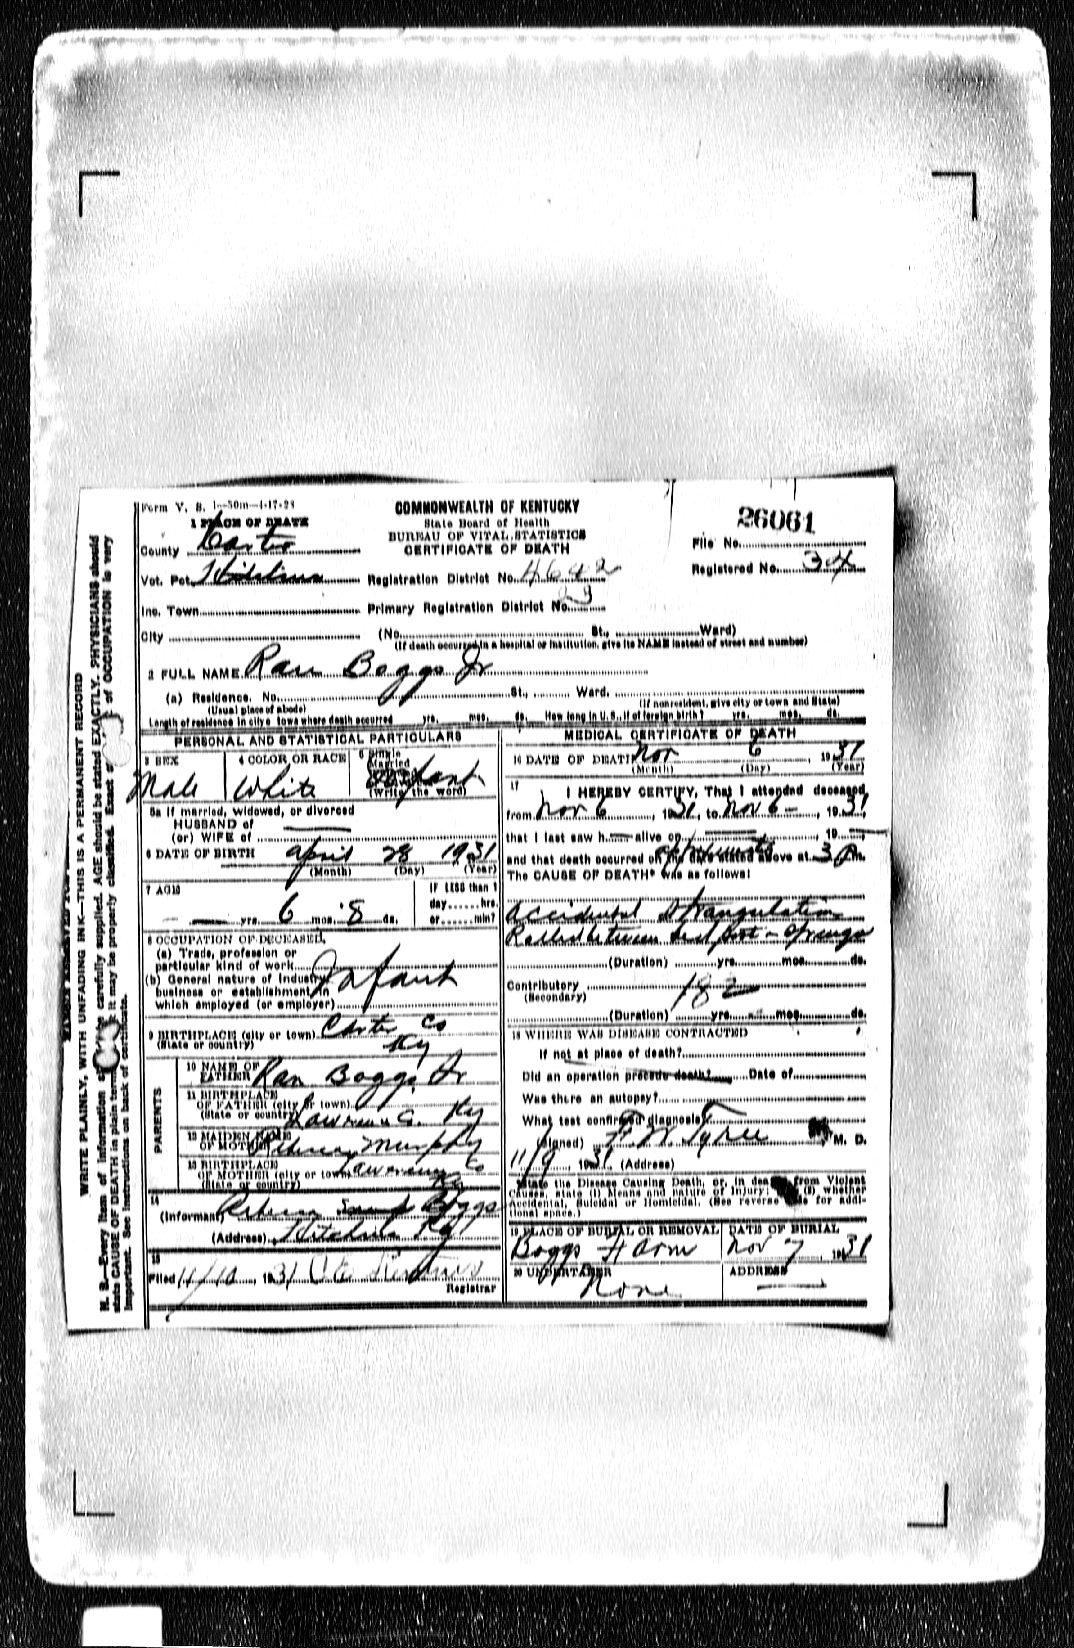 Form V. S. 1—50m—4-17-28
COMMONWEALTH OF KENTUCKY
State Board of Health
BUREAU OF VITAL STATISTICS
CERTIFICATE OF DEATH
26061
File No.
Registered No. 34
1 PLACE OF DEATH
County Carter
Vot. Pct. Hitchins
Registration District No. 4642
Inc. Town
Primary Registration District No.
City
(No. St., Ward)
(If death occurred in a hospital or institution, give its NAME instead of street and number)
2 FULL NAME Ran Boggs Jr
(a) Residence. No. St., Ward.
(Usual place of abode)
(If nonresident, give city or town and State)
Length of residence in city or town where death occurred yrs. mos. ds. How long in U. S., if of foreign birth? yrs. mos. ds.
PERSONAL AND STATISTICAL PARTICULARS
3 SEX
Male
4 COLOR OR RACE
White
5 Single
Married
Infant
(Write the word)
5a If married, widowed, or divorced
HUSBAND of
(or) WIFE of
6 DATE OF BIRTH April 28 1931
(Month) (Day) (Year)
7 AGE
yrs. 6 mos. 8 ds.
If LESS than 1
day......hrs.
or......min?
8 OCCUPATION OF DECEASED
(a) Trade, profession or
particular kind of work
(b) General nature of Industry
business or establishment in
which employed (or employer)
Infant
9 BIRTHPLACE (city or town) Carter Co
(State or country) Ky
PARENTS
10 NAME OF
FATHER Ran Boggs Jr
11 BIRTHPLACE
OF FATHER (city or town)
(State or country) Lawrence Co. Ky
12 MAIDEN NAME
OF MOTHER Rebecca Murphy
13 BIRTHPLACE
OF MOTHER (city or town) Lawrence Co
(State or country) Ky
14
(Informant) Rebecca Boggs
(Address) Hitchins Ky
15
Filed 11/10, 1931
Registrar
MEDICAL CERTIFICATE OF DEATH
16 DATE OF DEATH Nov 6, 1931
(Month) (Day) (Year)
17
I HEREBY CERTIFY, That I attended deceased
from Nov 6, 1931, to Nov 6, 1931,
that I last saw h alive on 19
and that death occurred on the date stated above at 3 P m.
The CAUSE OF DEATH* was as follows:
Accidental Strangulation
Rolled between bed post &
(Duration) yrs. mos. ds.
Contributory
(Secondary)
182
(Duration) yrs. mos. ds.
18 WHERE WAS DISEASE CONTRACTED
If not at place of death?
Did an operation precede death? Date of
Was there an autopsy?
What test confirmed diagnosis?
(Signed) F. W. Tyree M. D.
11/9, 1931, (Address)
*State the Disease Causing Death, or, in deaths from Violent
Causes, state (1) Means and nature of Injury; (2) whether
Accidental, Suicidal or Homicidal. (See reverse side for addi-
tional space.)
19 PLACE OF BURIAL OR REMOVAL
Boggs Farm
DATE OF BURIAL
Nov 7, 1931
20 UNDERTAKER
None
ADDRESS
WRITE PLAINLY, WITH UNFADING INK—THIS IS A PERMANENT RECORD
N. B.—Every Item of Information carefully supplied. AGE should be stated EXACTLY. PHYSICIANS should
state CAUSE OF DEATH in plain terms it may be properly classified. Exact of OCCUPATION is very
important. See instructions on back of certificate.